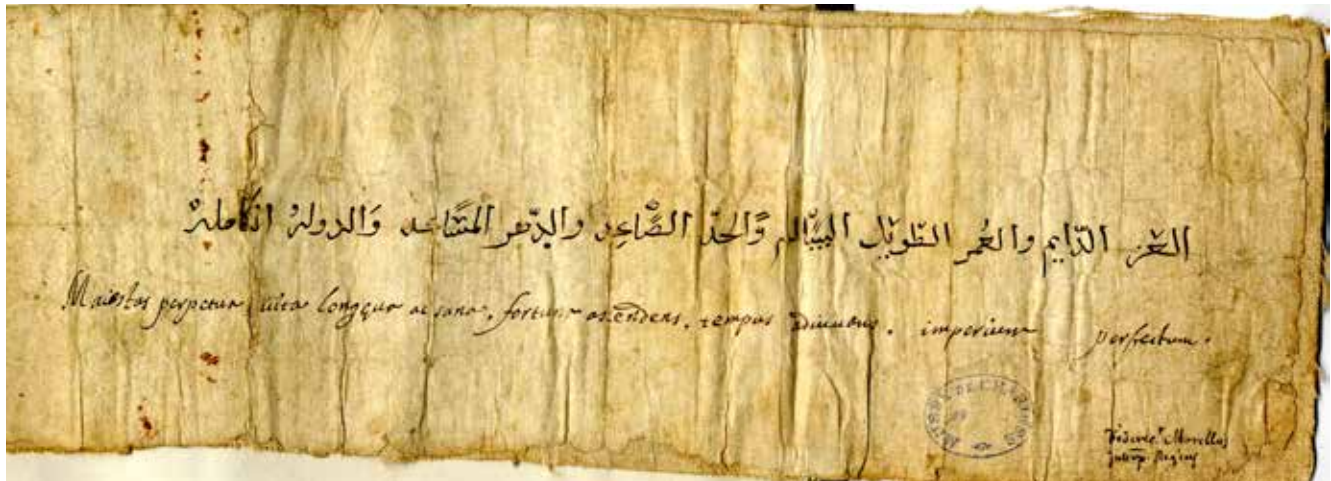 العز الدّايم والعُمر الطّويل السّالم وَالجدّ الصَّاعِد والدّهر المسَاعد وَالدولة الكاملة
Maiestas perpetua, vita longęua ac sana, fortuna ascendens, tempus adiuuans, imperium perfectum.
Federic<sup>s</sup> Morellus